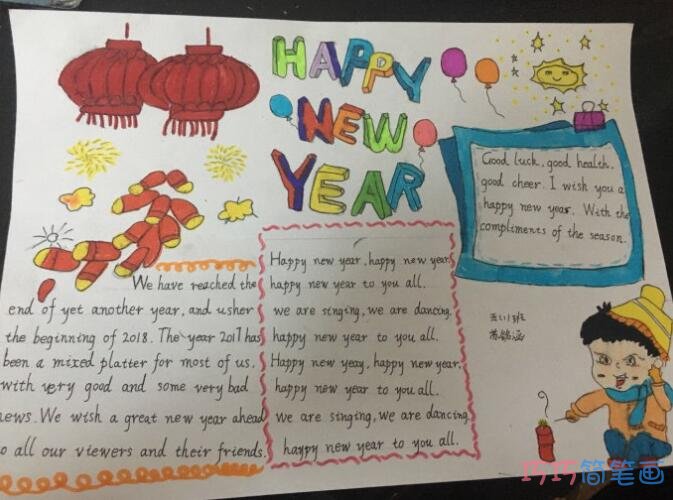 HAPPY
NEW
YEAR
Good luck, good health,
good cheer. I wish you a
happy new year. With the
compliments of the season.
We have reached the
end of yet another year, and usher
the beginning of 2018. The year 2017 has
been a mixed platter for most of us.
with very good and some very bad
news. We wish a great new year ahead
to all our viewers and their friends.
Happy new year, happy new year,
happy new year to you all.
we are singing, we are dancing.
happy new year to you all.
Happy new yeay, happy new year.
happy new year to you all.
we are singing, we are dancing
happy new year to you all.
五(1)班
巧巧简笔画